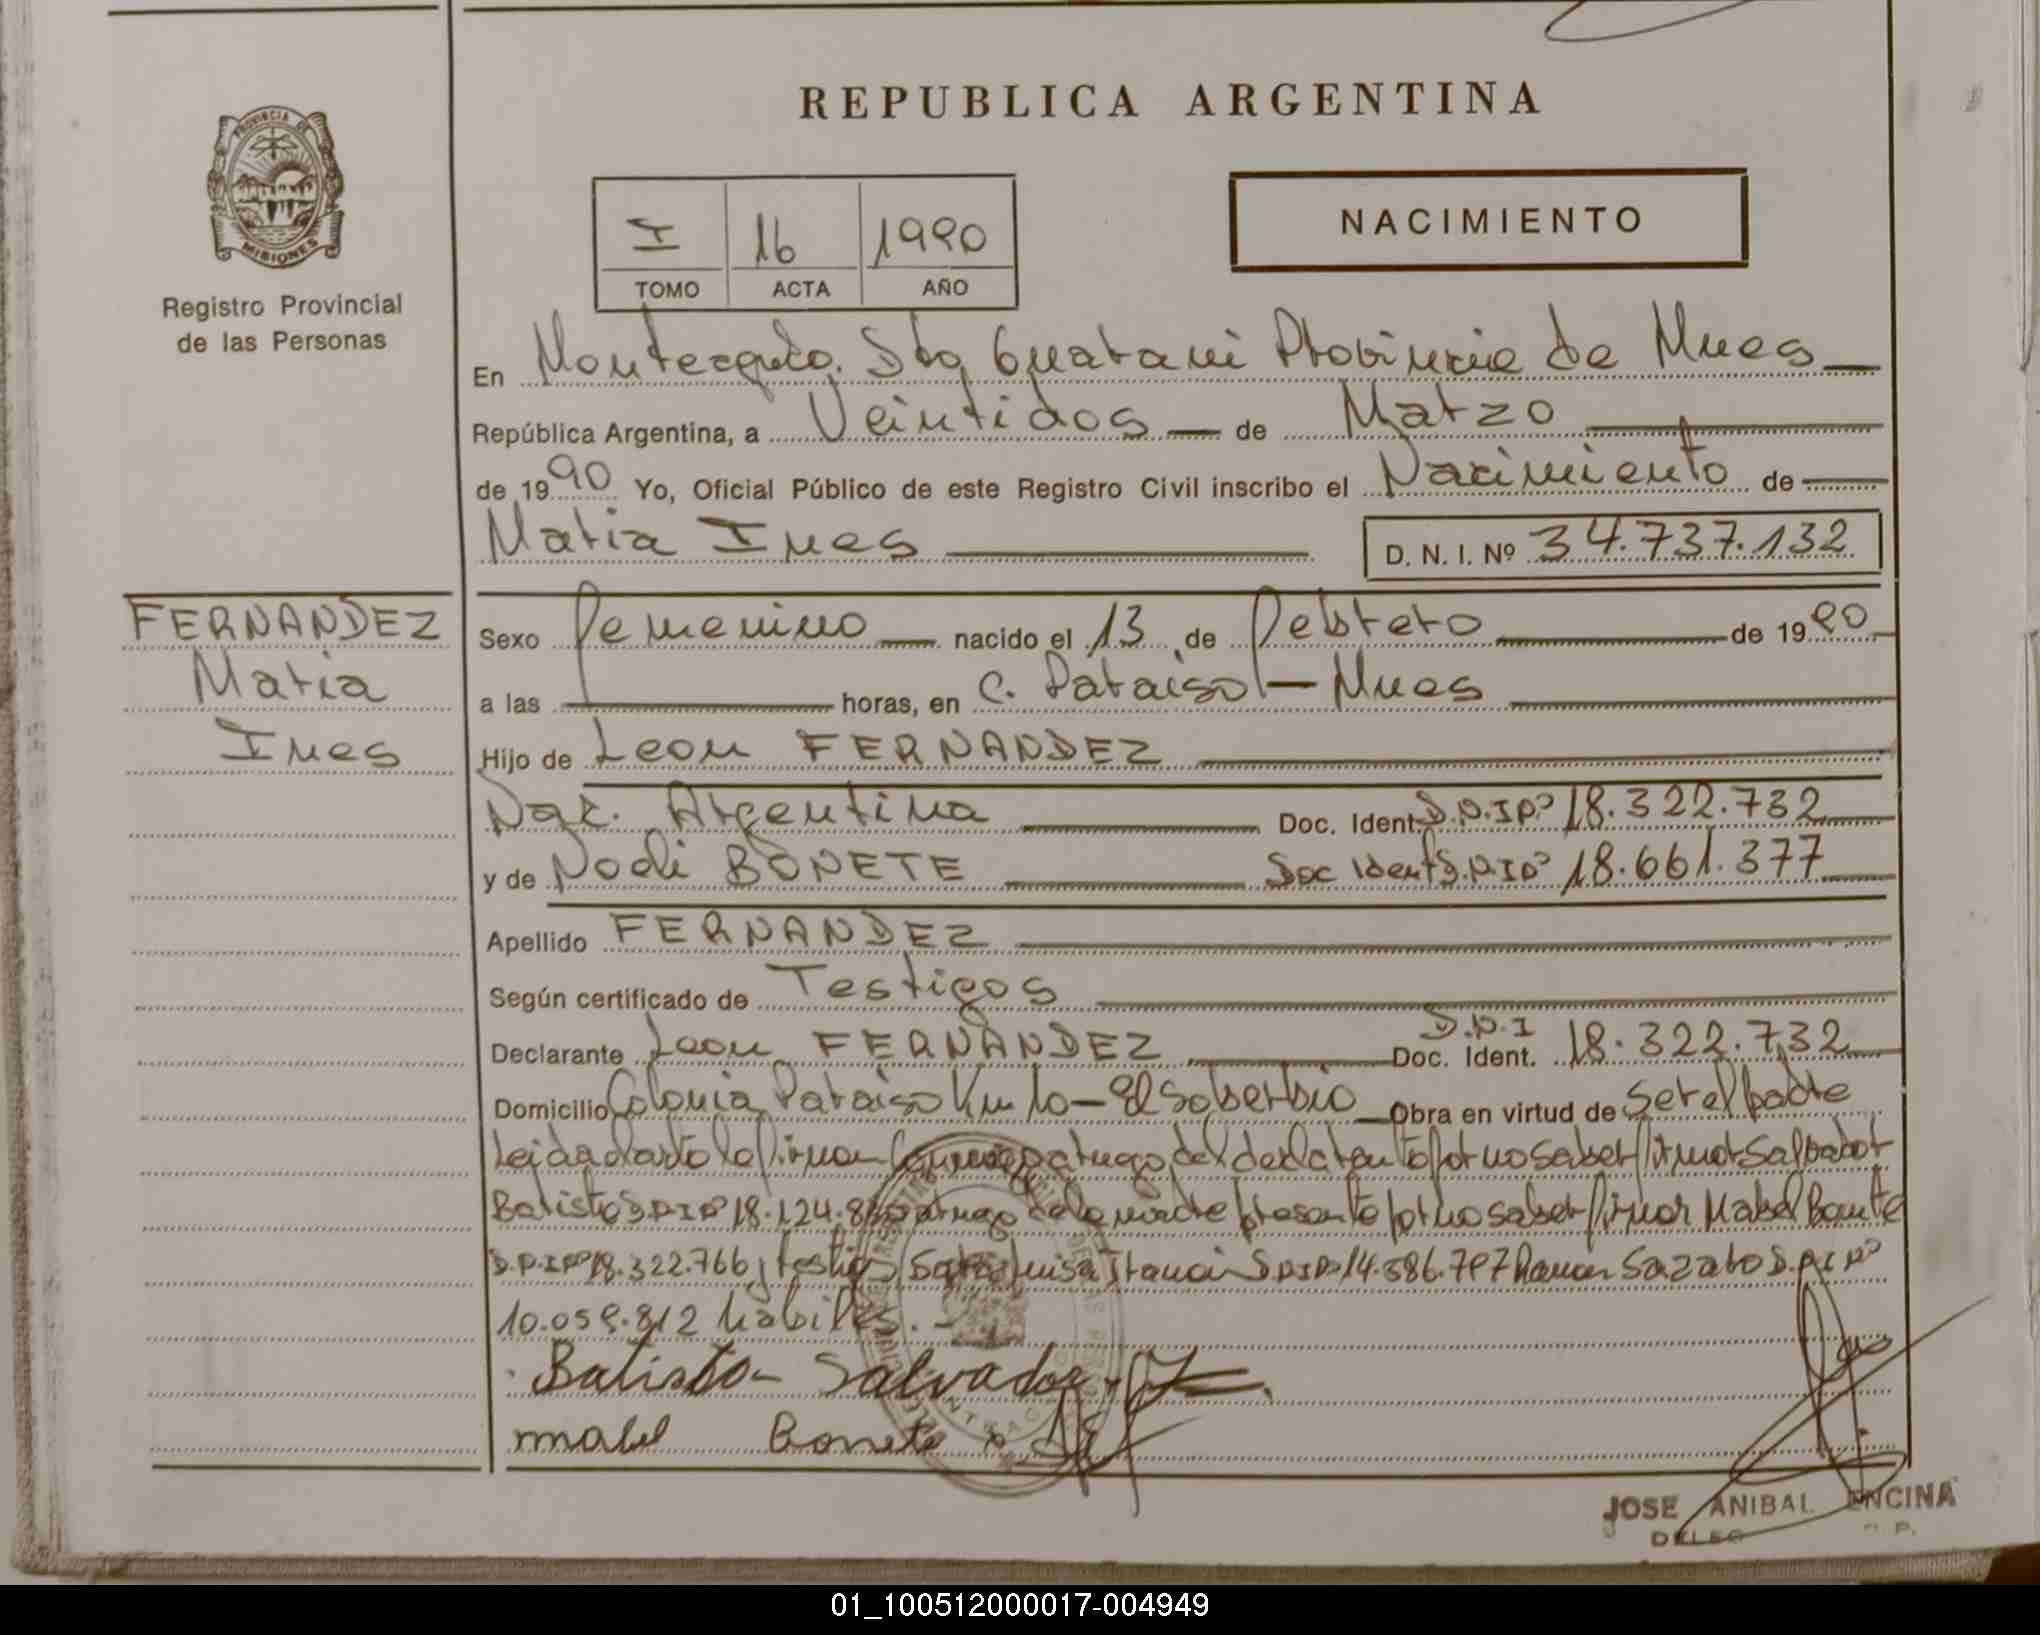 REPUBLICA ARGENTINA
PROVINCIA DE
MISIONES
Registro Provincial
de las Personas
I 16 1990
TOMO ACTA AÑO
NACIMIENTO
En Monteagudo. Dto Guarani Provincia de Mnes
República Argentina, a Veintidos de Marzo
de 1990 Yo, Oficial Público de este Registro Civil inscribo el Nacimiento de
Maria Ines D. N. I. Nº 34.737.132
FERNANDEZ
Maria
Ines
Sexo Femenino nacido el 13 de Febrero de 1990
a las horas, en C. Paraiso - Mnes
Hijo de Leon FERNANDEZ
Nac. Argentina Doc. Ident. D.N.I Nº 18.322.732
y de Nodi BONETE Doc Ident D.N.I Nº 18.661.377
Apellido FERNANDEZ
Según certificado de Testigos
Declarante Leon FERNANDEZ D.N.I Doc. Ident. 18.322.732
Domicilio Colonia Paraiso Km 10 - El Soberbio Obra en virtud de Ser el padre
Leida el acta la firman Conmigo a ruego del declarante por no saber firmar Salvador
Batista D.N.I Nº 18.124.8 a ruego de la madre presente por no saber firmar Mabel Bonete
D.N.I Nº 18.322.766 y testigos Sara Luisa D.N.I Nº 14.586.797 Ramon Sazabo D.N.I Nº
10.059.812 habiles. -
Batista Salvador
mabel Bonete
JOSE ANIBAL ENCINA
01_100512000017-004949